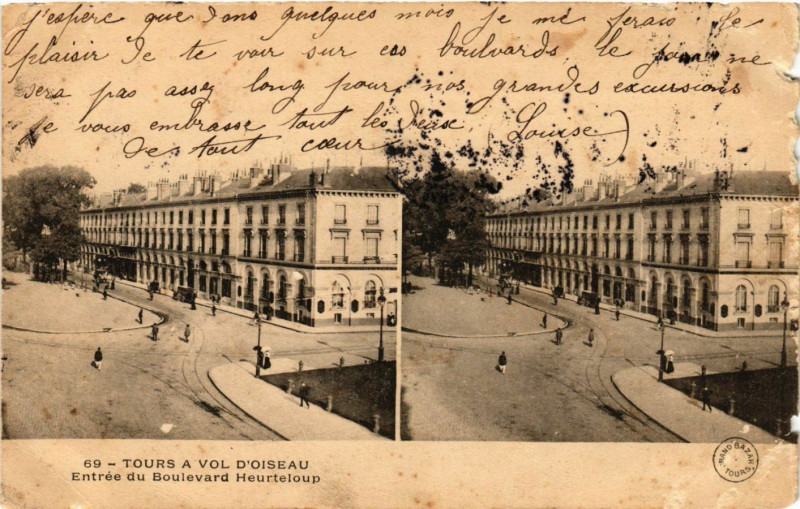 j'espère que dans quelques mois je me ferais le
plaisir de te voir sur ces boulvards, le ne
sera pas assez long pour nos grandes excursions
Je vous embrasse tout les deux
de tout cœur Louise
69 - TOURS A VOL D'OISEAU
Entrée du Boulevard Heurteloup
GRAND BAZAR
TOURS